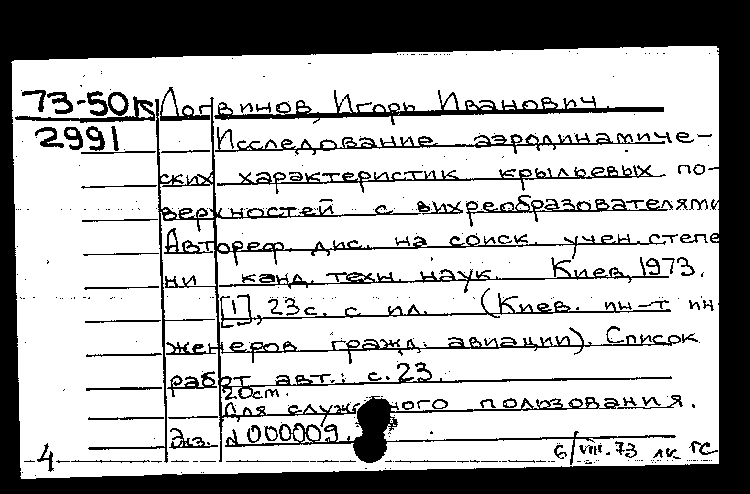 73-50к Логвинов, Игорь Иванович.
2991 Исследование аэродинамиче-
ских характеристик крыльевых по-
верхностей с вихреобразователями
Автореф. дис. на соиск. учен. степе
ни канд. техн. наук. Киев, 1973.
[1], 23 с. с ил. (Киев. ин-т ин
женеров гражд. авиации). Список
работ авт.: с. 23.
20 см.
Для служебного пользования.
Экз. № 000009.
4 6/VIII.73 лк ГС